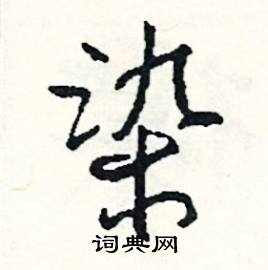 染
词典网